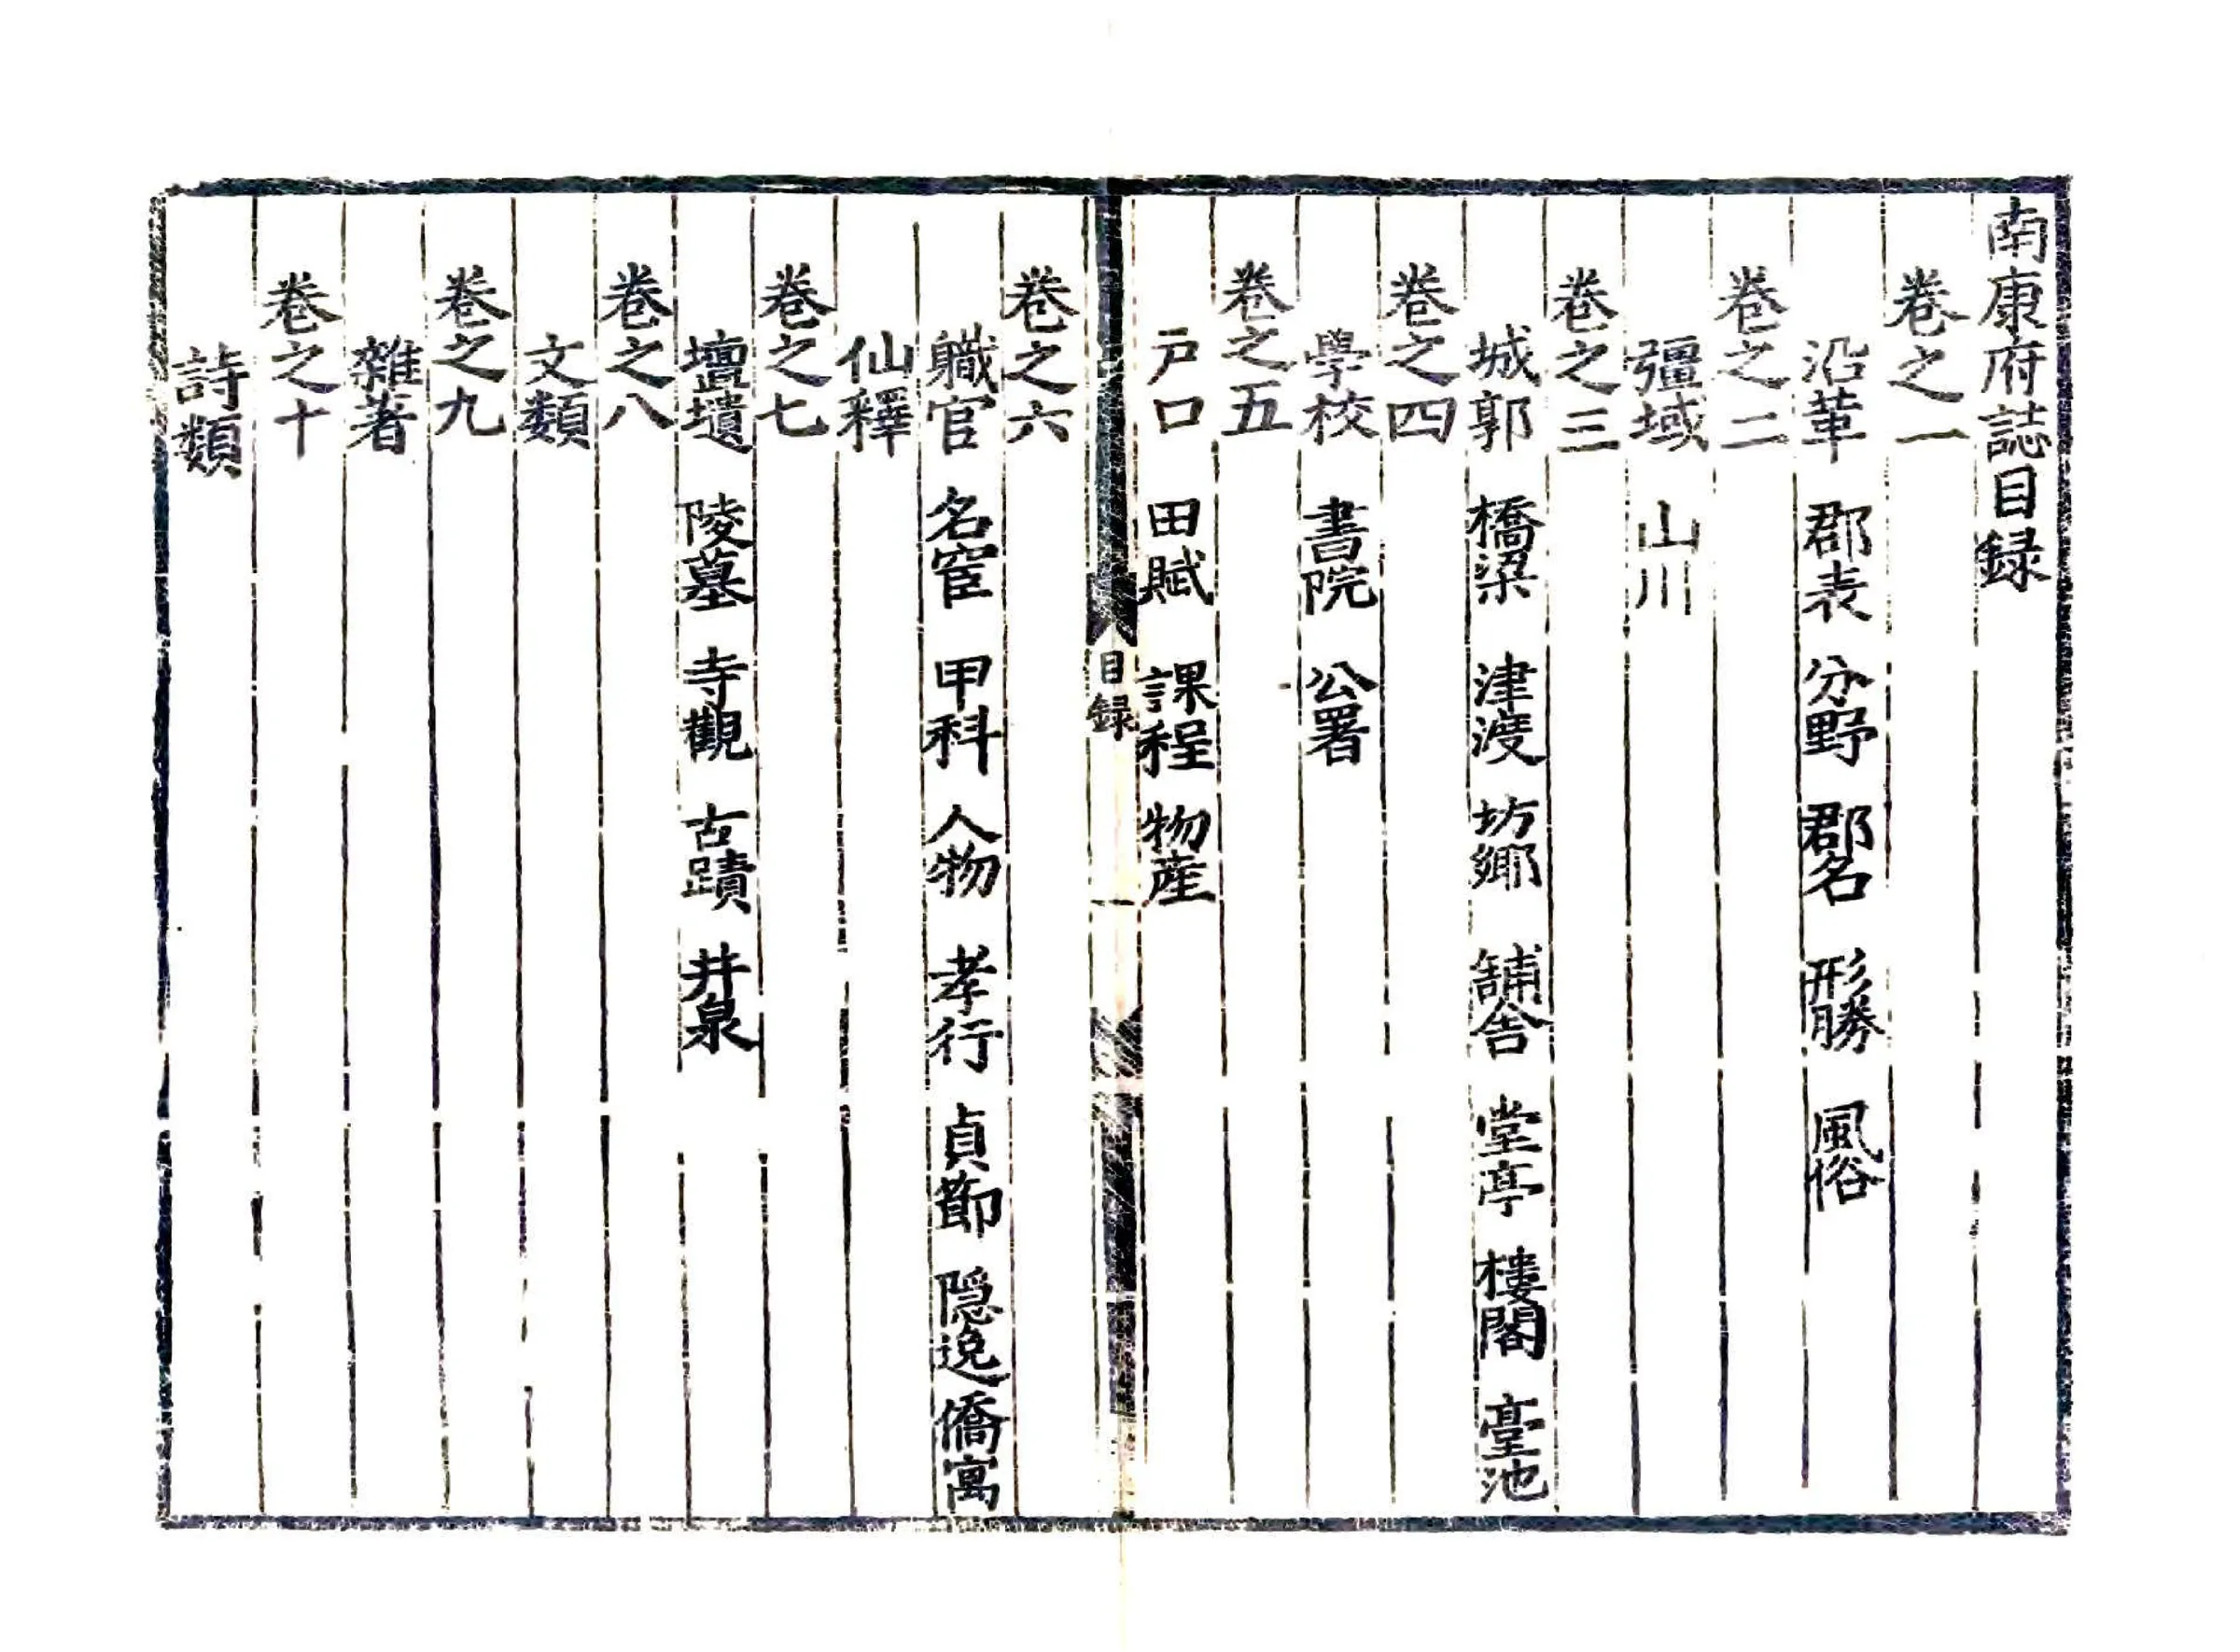 南康府誌目録
卷之一
沿革 郡表 分野 郡名 形勝 風俗
卷之二
彊域 山川
卷之三
城郭 橋梁 津渡 坊鄉 鋪舍 堂亭 樓閣 臺池
卷之四
學校 書院 公署
卷之五
戶口 田賦 課程 物産
目録
一
卷之六
職官 名宦 甲科 人物 孝行 貞節 隱逸 僑寓
仙釋
卷之七
壇壝 陵墓 寺觀 古蹟 井泉
卷之八
文類
卷之九
雜著
卷之十
詩類